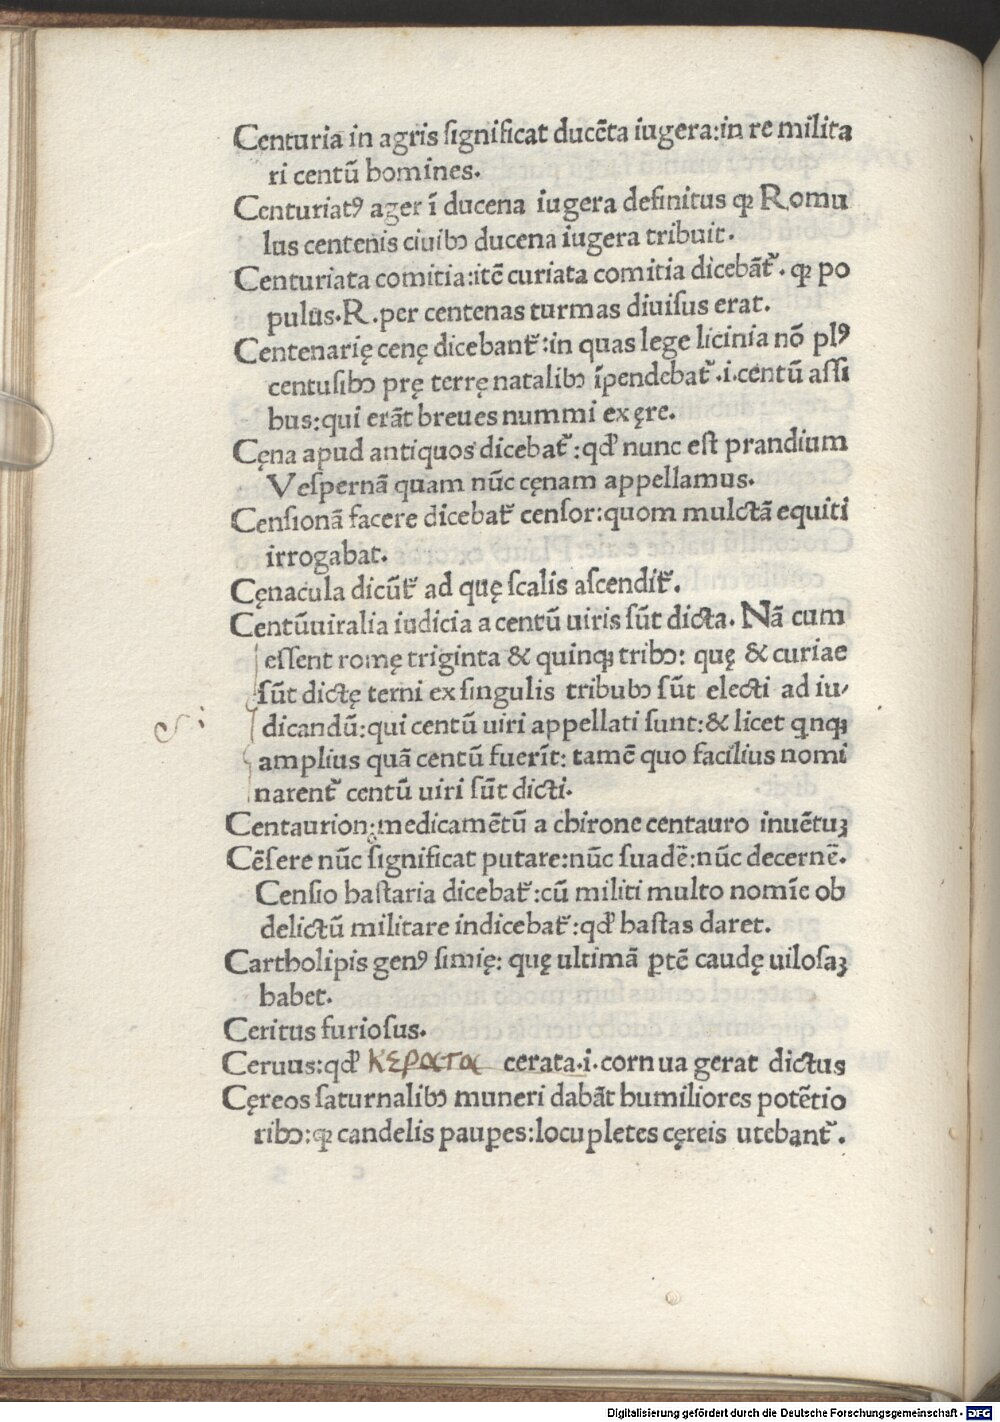 Centuria in agris ſignificat ducēta iugera:in re milita
ri centū homines.
Centuriatꝰ ager ī ducena iugera definitus ꝙ Romu
lus centenis ciuibꝫ ducena iugera tribuit.
Centuriata comitia:itē curiata comitia dicebāt᷑. ꝙ po
pulus.R.per centenas turmas diuiſus erat.
Centenarię cenę dicebant᷑:in quas lege licinia nō plꝰ
centuſibꝫ prę terrę natalibꝫ īpendebat᷑.i.centū aſſi
bus:qui erāt breues nummi ex ęre.
Cęna apud antiquos dicebat᷑:qđ nunc eſt prandium
Veſpernā quam nūc cęnam appellamus.
Cenſionā facere dicebat᷑ cenſor:quom mulctā equiti
irrogabat.
Cęnacula dicūt᷑ ad quę ſcalis aſcendit᷑.
Centūuiralia iudicia a centū uiris ſūt dicta. Nā cum
eſſent romę triginta & quinqꝫ tribꝫ: quę & curiae
ſūt dictę terni ex ſingulis tribubꝫ ſūt electi ad iu⸗
dicandū:qui centū uiri appellati ſunt:& licet qnqꝫ
amplius quā centū fuerīt: tamē quo facilius nomi
narent᷑ centū uiri ſūt dicti.
Centaurion:medicamētū a chirone centauro inuētuꝫ
Cēſere nūc ſignificat putare:nūc ſuadē:nūc decernē.
Cenſio haſtaria dicebat᷑:cū militi multo nomīe ob
delictū militare indicebat᷑:qđ haſtas daret.
Cartholipis genꝰ ſimię: quę ultimā ꝑtē caudę uiloſaꝫ
habet.
Ceritus furioſus.
Ceruus:qđ κερατα cerata.i.cornua gerat dictus
Cęreos ſaturnalibꝫ muneri dabāt humiliores potētio
ribꝫ:ꝙ candelis pauꝑes:locupletes cęreis utebant᷑.
Digitalisierung gefördert durch die Deutsche Forschungsgemeinschaft - DFG